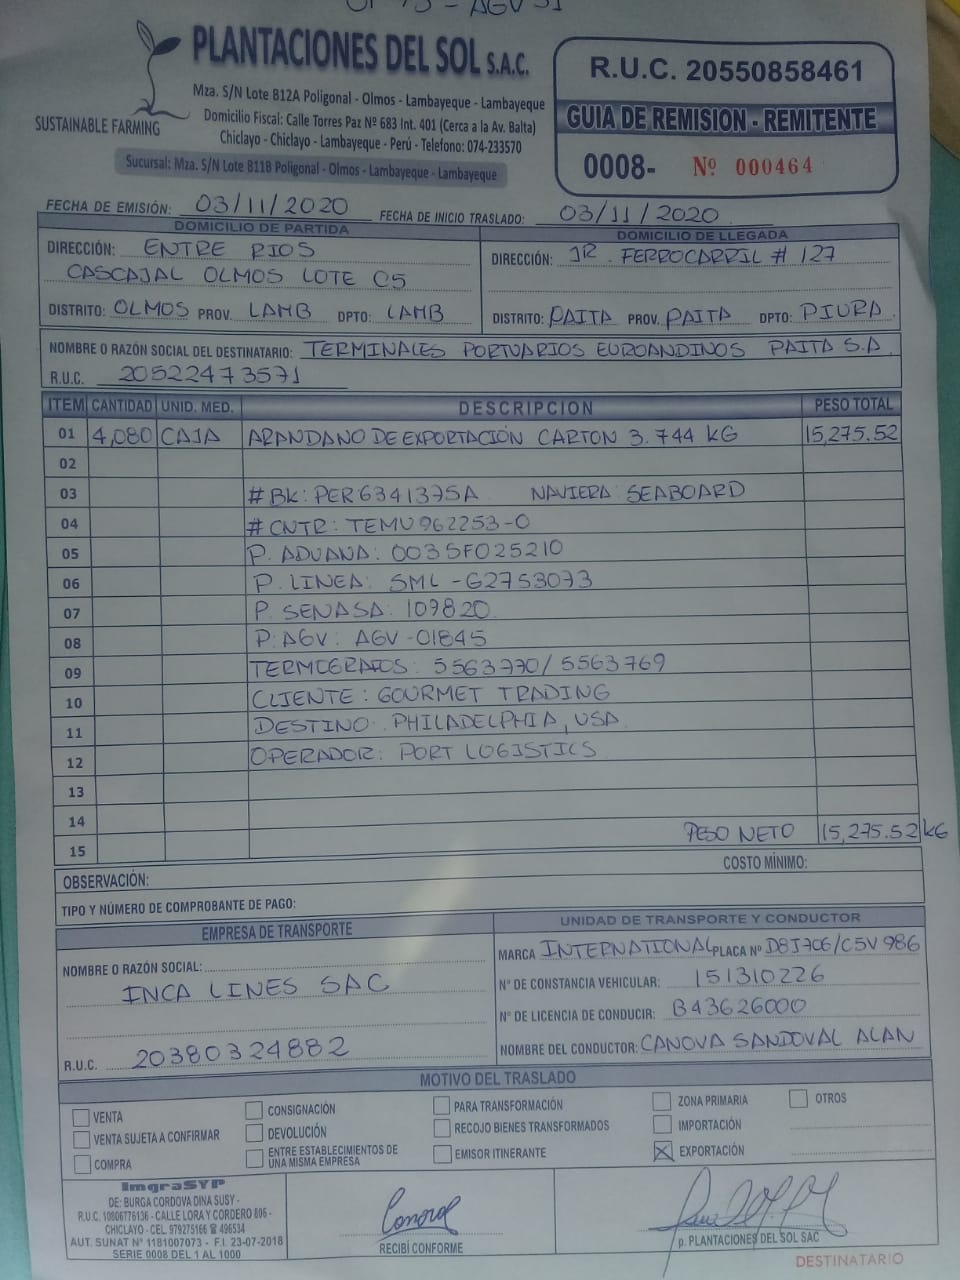 PLANTACIONES DEL SOL S.A.C.
SUSTAINABLE FARMING
Mza. S/N Lote B12A Poligonal - Olmos - Lambayeque - Lambayeque
Domicilio Fiscal: Calle Torres Paz Nº 683 Int. 401 (Cerca a la Av. Balta)
Chiclayo - Chiclayo - Lambayeque - Perú - Telefono: 074-233570
Sucursal: Mza. S/N Lote B11B Poligonal - Olmos - Lambayeque - Lambayeque
R.U.C. 20550858461
GUIA DE REMISION - REMITENTE
0008- Nº 000464
FECHA DE EMISIÓN: 03/11/2020 FECHA DE INICIO TRASLADO: 03/11/2020
DOMICILIO DE PARTIDA
DIRECCIÓN: ENTRE RIOS
CASCAJAL OLMOS LOTE C5
DISTRITO: OLMOS PROV. LAMB DPTO: LAMB
DOMICILIO DE LLEGADA
DIRECCIÓN: JR. FERROCARRIL # 127
DISTRITO: PAITA PROV. PAITA DPTO: PIURA
NOMBRE O RAZÓN SOCIAL DEL DESTINATARIO: TERMINALES PORTUARIOS EUROANDINOS PAITA S.A
R.U.C. 20522473571
ITEM CANTIDAD UNID. MED. DESCRIPCION PESO TOTAL
01 4,080 CAJA ARANDANO DE EXPORTACIÓN CARTON 3.744 KG 15,275.52
02
03 # BK: PER6341375A NAVIERA: SEABOARD
04 # CNTR: TEMU962253-0
05 P. ADUANA: 0035F025210
06 P. LINEA: SML -G2753073
07 P. SENASA: 109820
08 P. AGV: AGV-01845
09 TERMOGRAFOS: 5563770/5563769
10 CLIENTE: GOURMET TRADING
11 DESTINO: PHILADELPHIA, USA
12 OPERADOR: PORT LOGISTICS
13
14
15 PESO NETO 15,275.52 KG
OBSERVACIÓN: COSTO MÍNIMO:
TIPO Y NÚMERO DE COMPROBANTE DE PAGO:
EMPRESA DE TRANSPORTE
NOMBRE O RAZÓN SOCIAL:
INCA LINES SAC
R.U.C. 20380324882
UNIDAD DE TRANSPORTE Y CONDUCTOR
MARCA INTERNATIONAL PLACA Nº D8J706/C5V986
Nº DE CONSTANCIA VEHICULAR: 151310226
Nº DE LICENCIA DE CONDUCIR: B43626000
NOMBRE DEL CONDUCTOR: CANOVA SANDOVAL ALAN
MOTIVO DEL TRASLADO
VENTA CONSIGNACIÓN PARA TRANSFORMACIÓN ZONA PRIMARIA OTROS
VENTA SUJETA A CONFIRMAR DEVOLUCIÓN RECOJO BIENES TRANSFORMADOS IMPORTACIÓN
COMPRA ENTRE ESTABLECIMIENTOS DE UNA MISMA EMPRESA EMISOR ITINERANTE X EXPORTACIÓN
ImgraSYP
DE: BURGA CORDOVA DINA SUSY -
R.U.C. 10806776136 - CALLE LORA Y CORDERO 806 -
CHICLAYO - CEL 979275166 ☎ 496534
AUT. SUNAT Nº 1181007073 - F.I. 23-07-2018
SERIE 0008 DEL 1 AL 1000
RECIBÍ CONFORME
p. PLANTACIONES DEL SOL SAC
DESTINATARIO